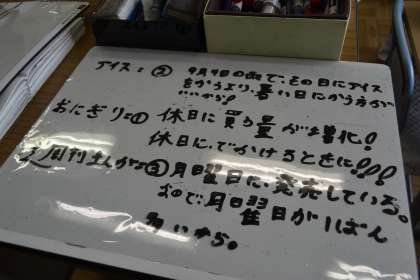 アイス:② 9月9日の雨でこの日にアイス
をかうより、暑い日にかう方が
いいから!
おにぎり:① 休日に買う量が増化!
休日に、でかけるときに!!!
③月曜日に発売している。
なので、月曜日がいちばん
多いから。